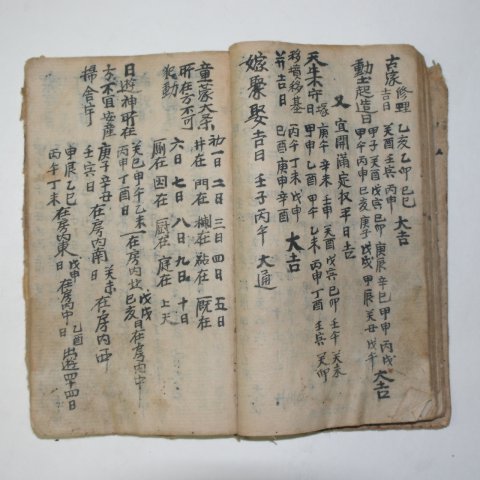 古家修理吉日 乙亥 乙卯 己巳 大吉
動土起造日 癸酉 壬寅 丙申
甲子 癸酉 戊寅 己卯 庚辰 辛巳 甲申 丙戌
甲申 丙申 己亥 庚子 戊戌 甲辰 癸丑 戊午 大吉
又 宜開滿定收平日吉
天牛不守塚 庚午 辛未 壬申 癸酉 戊寅 己卯 壬午 癸未
移墳移基 甲申 乙酉 甲午 乙未 丙申 丁酉 壬寅 癸卯
丙午 丁未 戊申
并吉日 己酉 庚申 辛酉 大吉
嫁娶吉日 壬子 丙午 大通
童蒙大杀 初一日 二日 三日 四日 五日
所在方不可犯動 井在 門在 在 在 厩在
六日 七日 八日 九日 十日
厠在 在 厨在 庭在 上天
日遊神所在 癸巳 甲午 乙未 在房內北 戊戌 日在房內中
方不宜安産 丙申 丁酉 日 己亥
掃舍宇 庚子 辛丑 在房內南 癸未 在房內西
壬寅日
甲辰 乙巳 在房內東 戊申 在房內中 乙酉 出遊四十四日
丙午 丁未 日 日